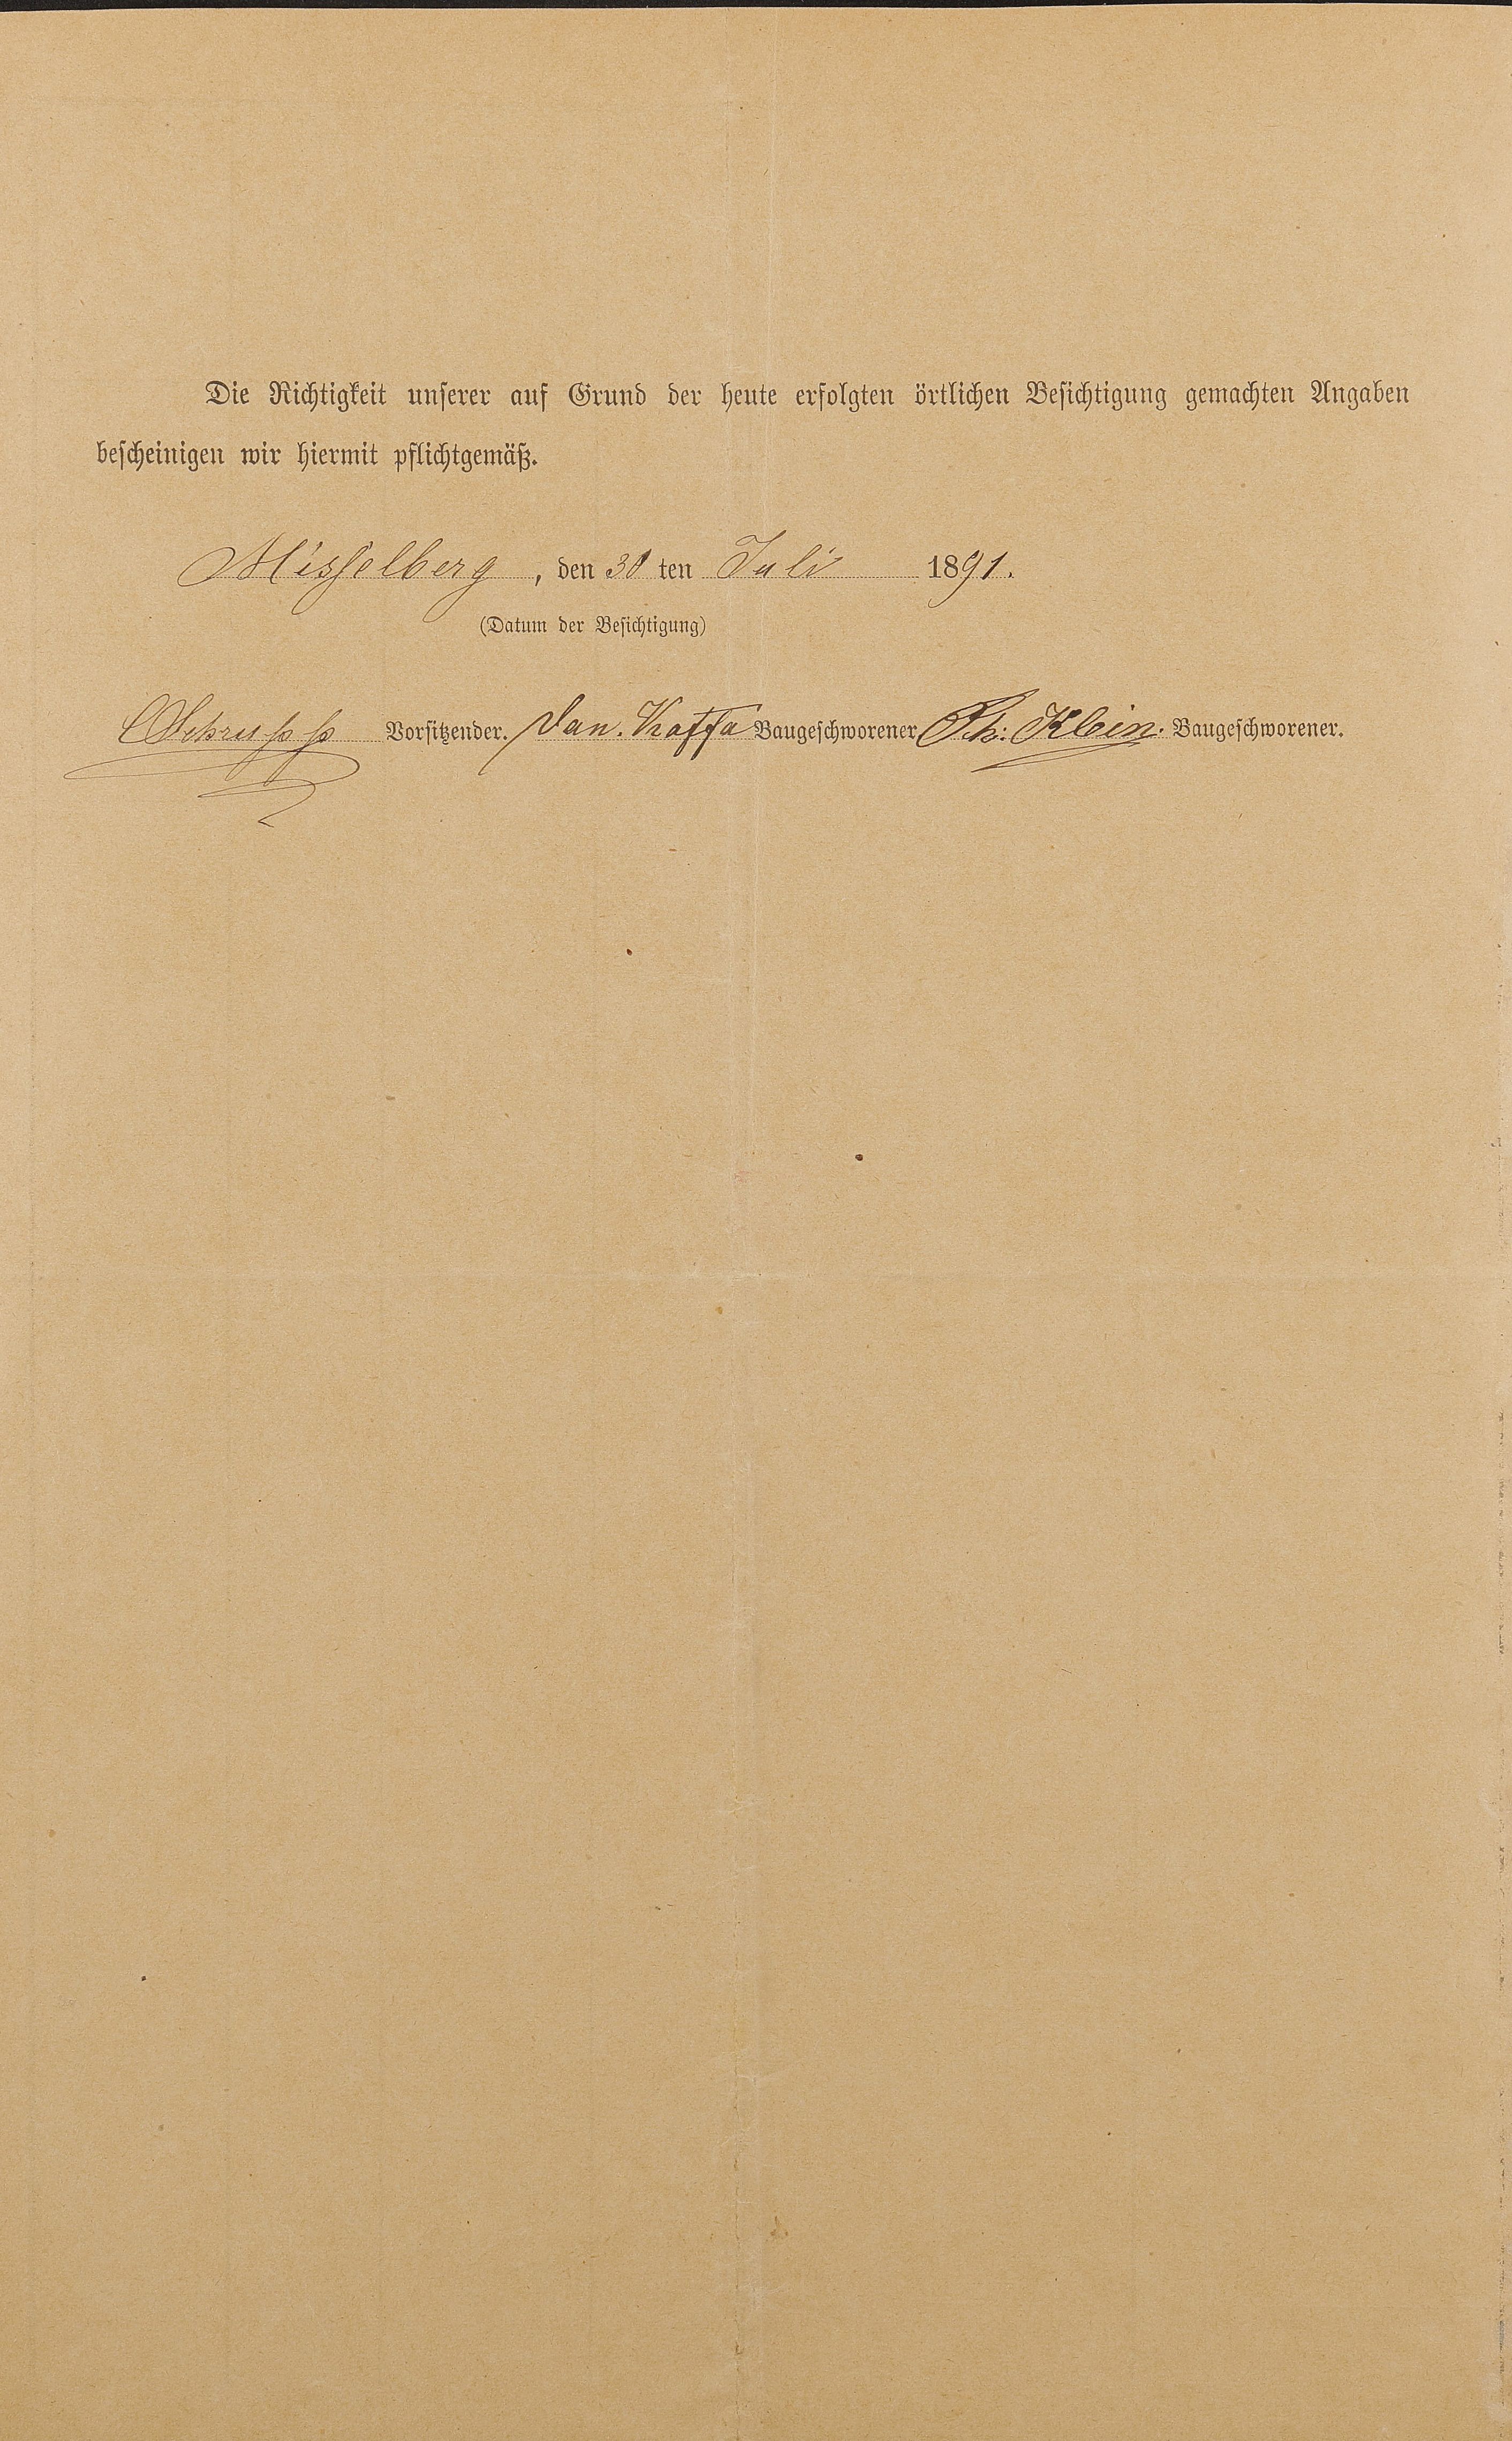 Die Richtigkeit unserer auf Grund der heute erfolgten örtlichen Besichtigung gemachten Angaben
bescheinigen wir hiermit pflichtgemäß.
Misselberg, den 30 ten Juli 1891.
(Datum der Besichtigung)
Schrupp Vorsitzender. Dan. Baugeschworener Ph: Klein. Baugeschworener.